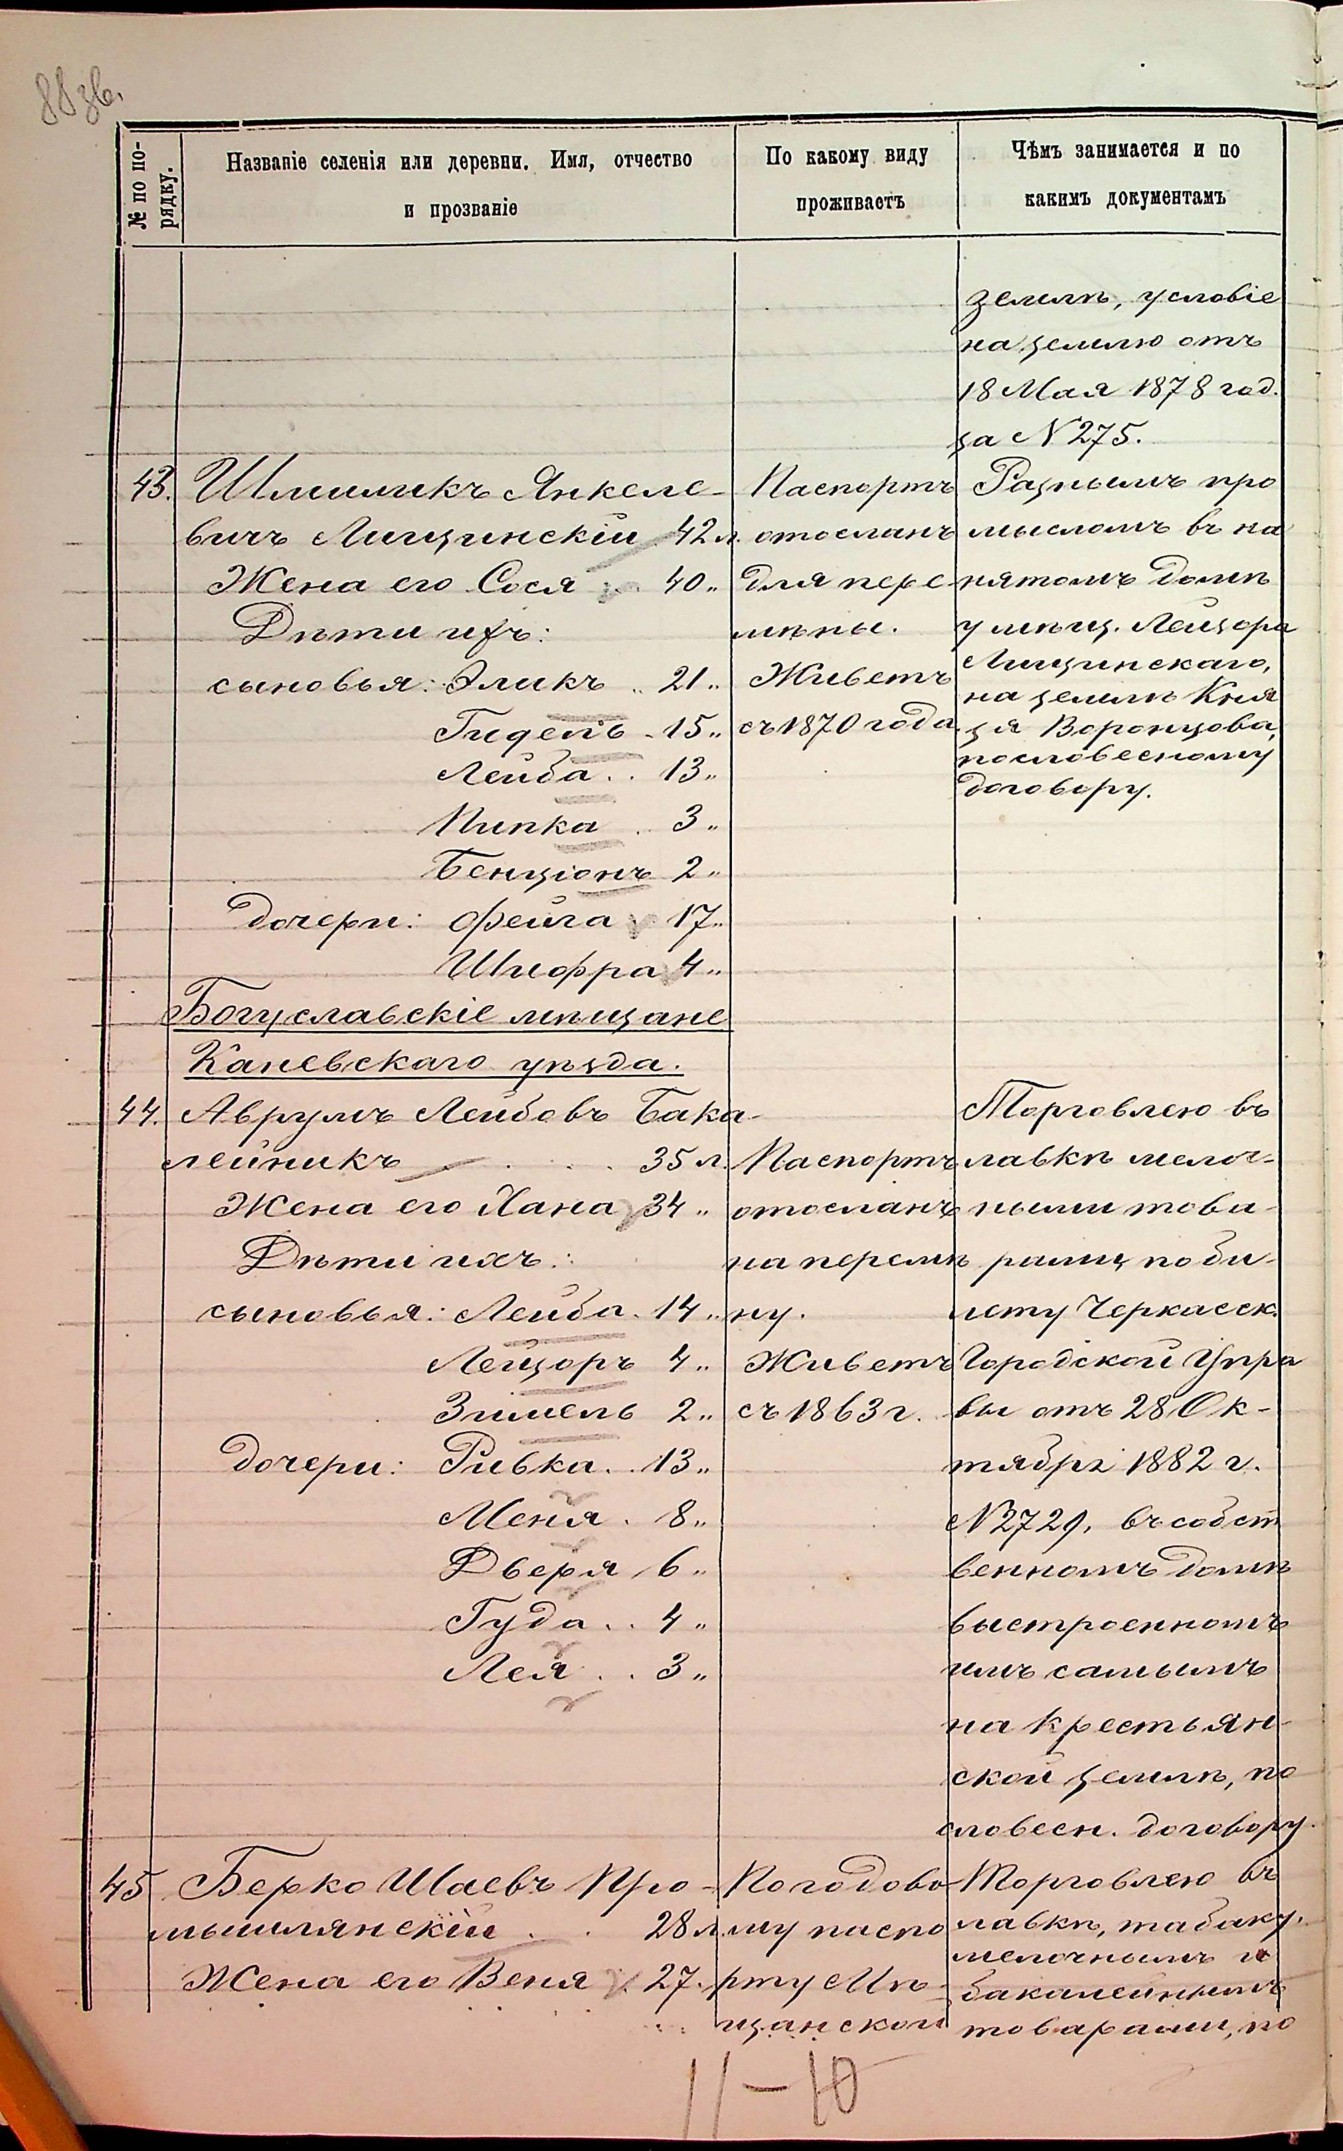 88 зв.
№ по по-
рядку.
Названіе селенія или деревни. Имя, отчество
и прозваніе
По какому виду
проживаетъ
Чѣмъ занимается и по
какимъ документамъ
землѣ, условіе
на землю отъ
18 Мая 1878 год.
за № 275.
43. Шмиликъ Янкеле-
вичъ Лищинскій 42 л.
Жена его Сося 40 "
Дѣти ихъ:
сыновья: Эликъ 21 "
Гидель 15 "
Лейба 13 "
Пипка 3 "
Бенціонъ 2 "
дочери: Фейга 17 "
Шифра 4 "
Паспортъ
отосланъ
для пере-
мѣны.
Живетъ
съ 1870 года.
Разнымъ про
мысломъ въ на
нятомъ домѣ
у мѣщ. Лейзора
Лищинскаго,
на землѣ Кня
зя Воронцова,
по словесному
договору.
Богуславскіе мѣщане
Каневскаго уѣзда.
44. Аврумъ Лейбовъ Бака-
лейникъ 35 л.
Жена его Хана 34 "
Дѣти ихъ:
сыновья: Лейба 14 "
Лейзоръ 4 "
Зимель 2 "
дочери: Ривка 13 "
Меня 8 "
Двейя 6 "
Гуда 4 "
Лея 3 "
Паспортъ
отосланъ
на перемѣ
ну.
Живетъ
съ 1863 г.
Торговлею въ
лавкѣ мелоч-
ными това-
рами, по би-
лету Черкасск.
Городской Упра
вы отъ 28 Ок-
тября 1882 г.
№ 2729, въ собст
венномъ домѣ
выстроенномъ
имъ самымъ
на крестьян-
ской землѣ, по
словесн. договору.
45 Берко Шаевъ Про-
мышлянскій 28 л.
Жена его Веня 27 "
По годово-
му паспо
рту Мѣ-
щанской
Торговлею въ
лавкѣ, табаку,
мелочнымъ и
бакалейнымъ
товарами, по
11 - 10